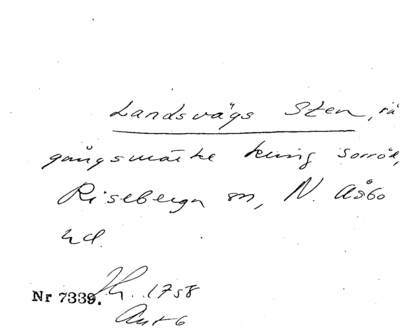 Landsvägs Sten, rå
gångsmärke kring Sorröd,
Riseberga sn, N. Åsbo
hd.
Nr 7339. Jh. 1758
Akt 6